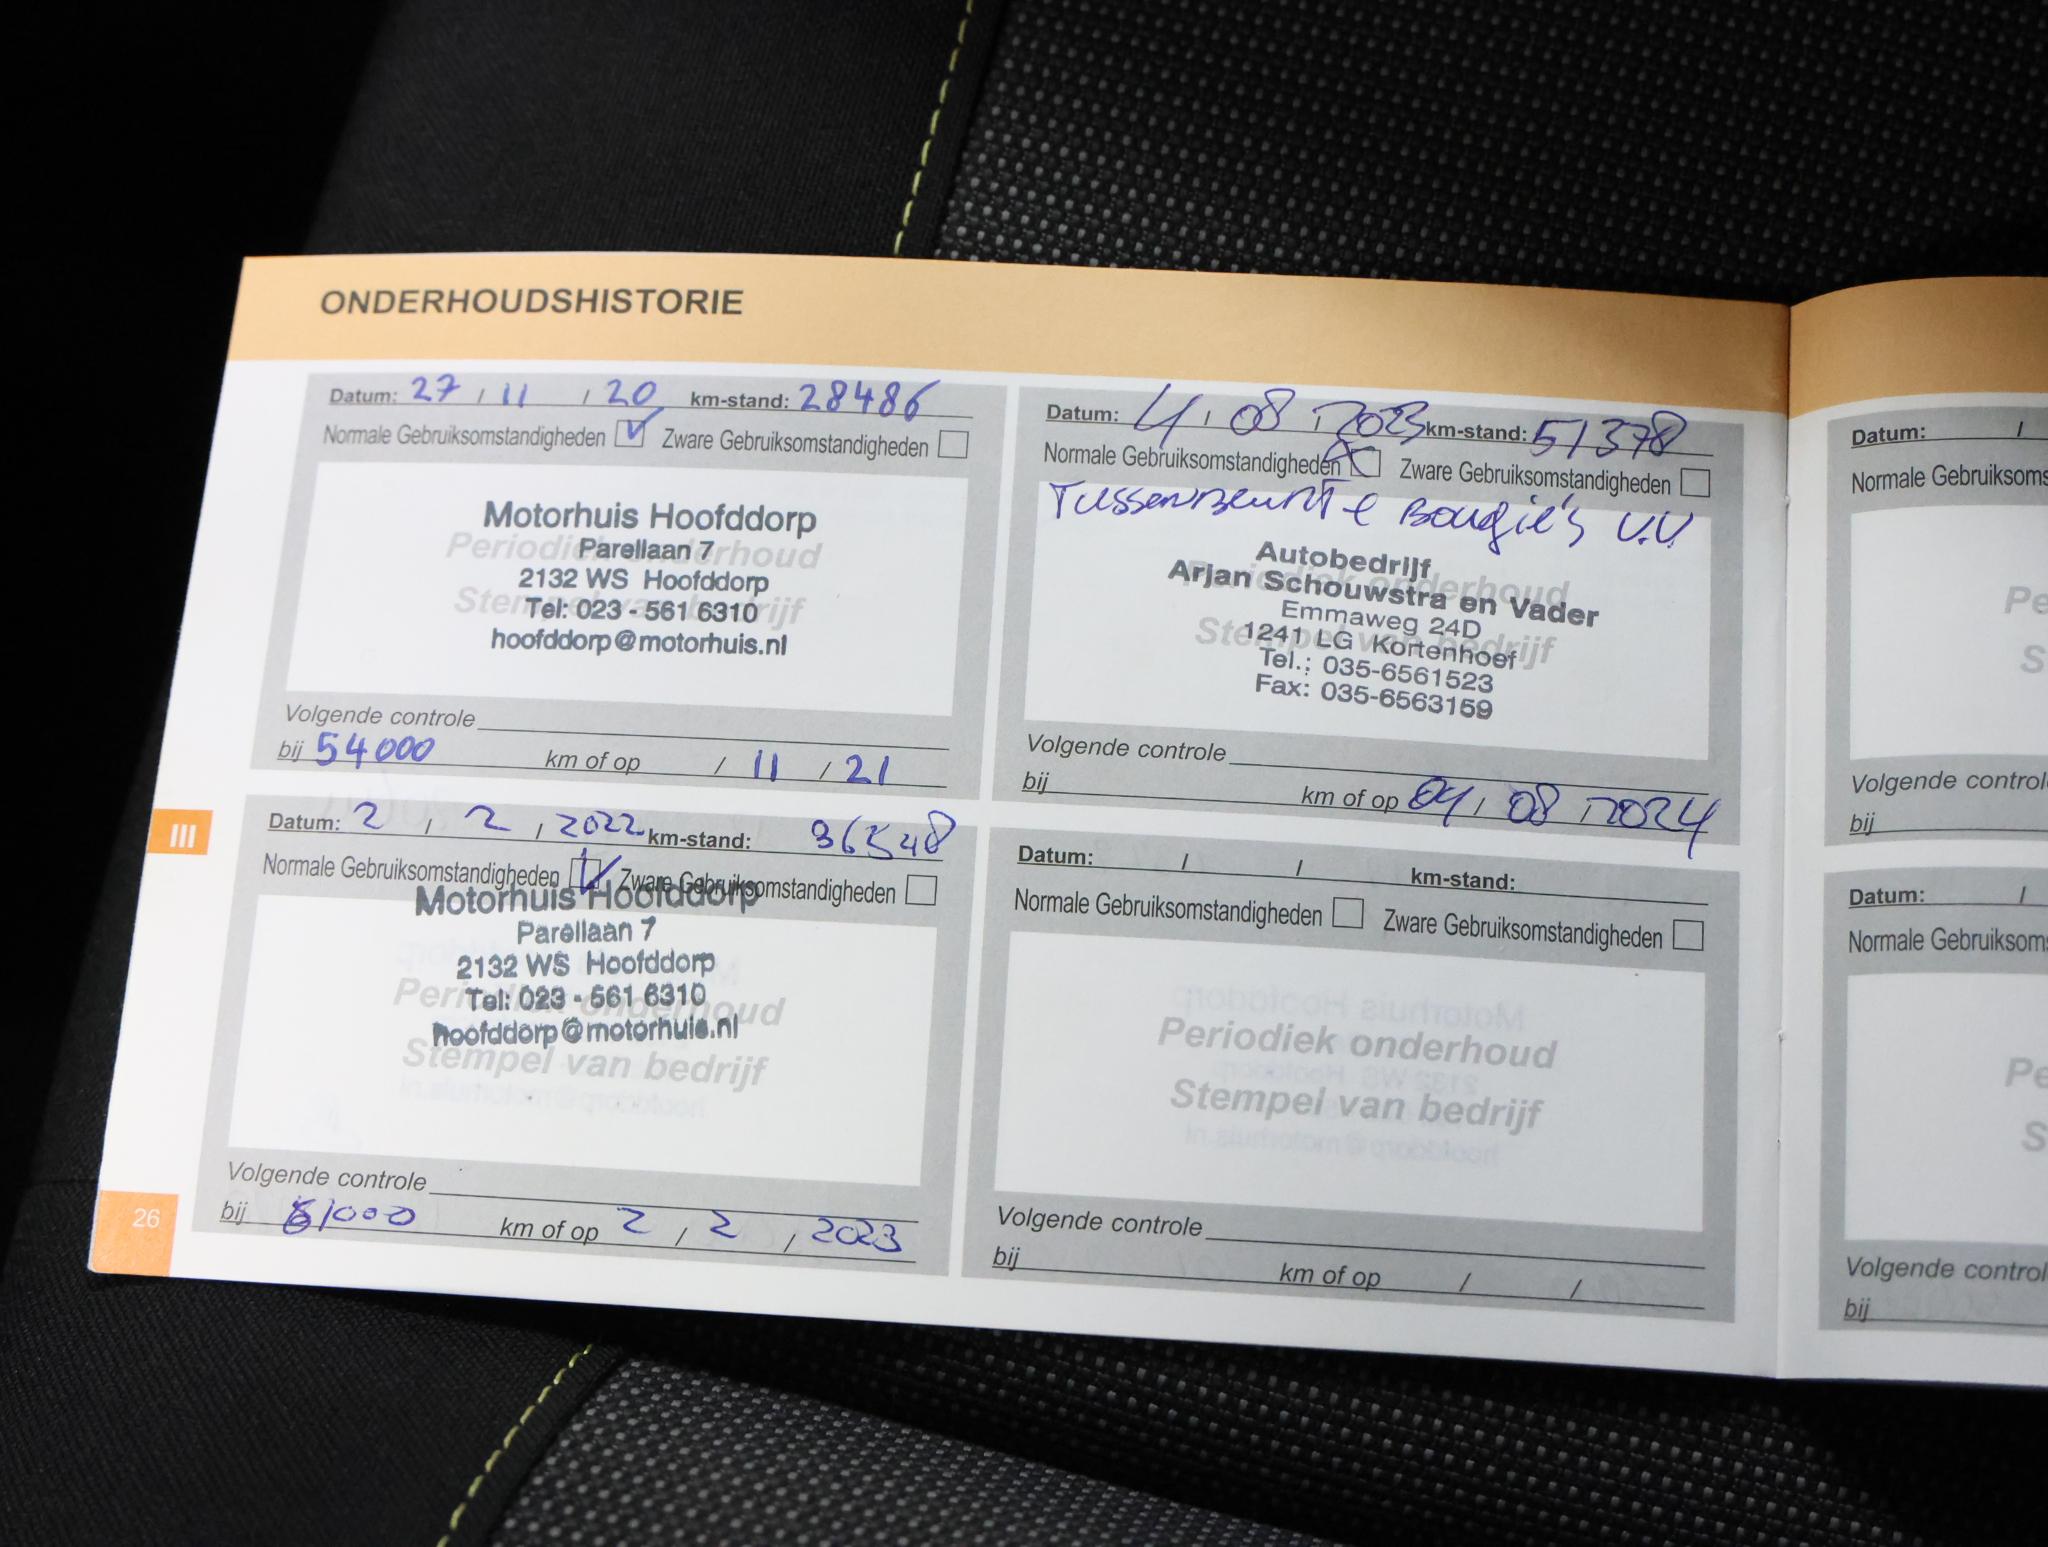 ONDERHOUDSHISTORIE
Datum: 27 / 11 / 20 km-stand: 28486
Normale Gebruiksomstandigheden Zware Gebruiksomstandigheden
Periodiek onderhoud
Stempel van bedrijf
Motorhuis Hoofddorp
Parellaan 7
2132 WS Hoofddorp
Tel: 023 - 561 6310
hoofddorp@motorhuis.nl
Volgende controle
bij 54000 km of op / 11 / 21
Datum: 2 / 2 / 2022 km-stand: 36548
Normale Gebruiksomstandigheden Zware Gebruiksomstandigheden
Periodiek onderhoud
Stempel van bedrijf
Motorhuis Hoofddorp
Parellaan 7
2132 WS Hoofddorp
Tel: 023 - 561 6310
hoofddorp@motorhuis.nl
Volgende controle
bij 61000 km of op 2 / 2 / 2023
III
26
Datum: 4 / 08 / 2023 km-stand: 51378
Normale Gebruiksomstandigheden Zware Gebruiksomstandigheden
Tussenbeurt + Bougie's V.V.
Periodiek onderhoud
Stempel van bedrijf
Autobedrijf
Arjan Schouwstra en Vader
Emmaweg 24D
1241 LG Kortenhoef
Tel.: 035-6561523
Fax: 035-6563159
Volgende controle
bij km of op 04 / 08 / 2024
Datum: / / km-stand:
Normale Gebruiksomstandigheden Zware Gebruiksomstandigheden
Periodiek onderhoud
Stempel van bedrijf
Volgende controle
bij km of op / /
Datum: /
Normale Gebruiksoms
Pe
S
Volgende control
bij
Datum: /
Normale Gebruiksoms
Pe
S
Volgende control
bij